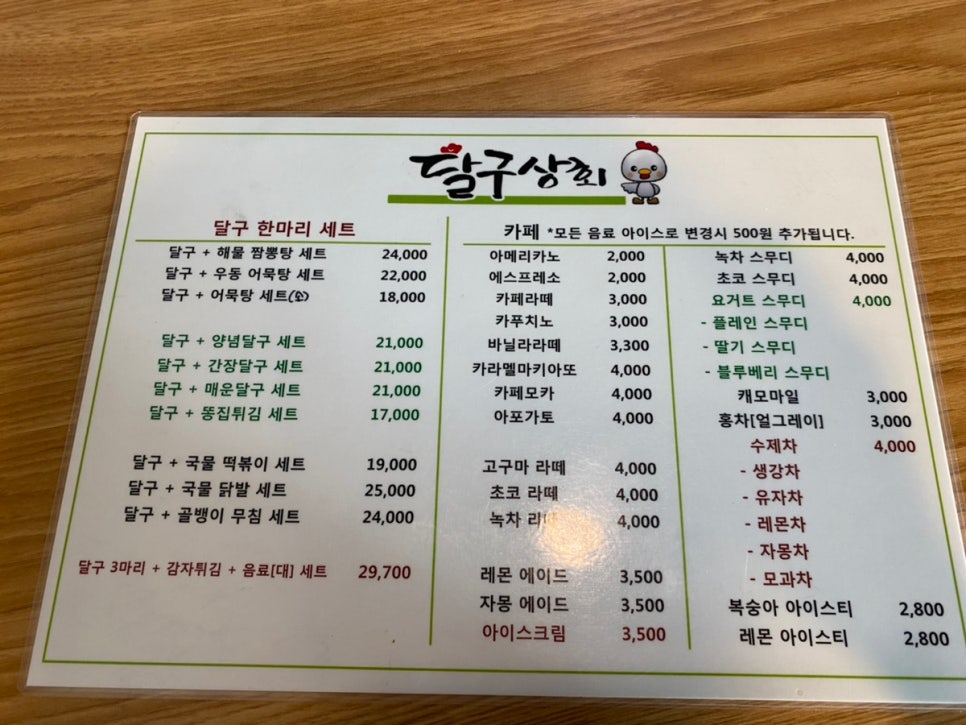 달구상회
달구 한마리 세트
달구 + 해물 짬뽕탕 세트 24,000
달구 + 우동 어묵탕 세트 22,000
달구 + 어묵탕 세트(소) 18,000
달구 + 양념달구 세트 21,000
달구 + 간장달구 세트 21,000
달구 + 매운달구 세트 21,000
달구 + 똥집튀김 세트 17,000
달구 + 국물 떡볶이 세트 19,000
달구 + 국물 닭발 세트 25,000
달구 + 골뱅이 무침 세트 24,000
달구 3마리 + 감자튀김 + 음료[대] 세트 29,700
카페 *모든 음료 아이스로 변경시 500원 추가됩니다.
아메리카노 2,000
에스프레소 2,000
카페라떼 3,000
카푸치노 3,000
바닐라라떼 3,300
카라멜마키아또 4,000
카페모카 4,000
아포가토 4,000
고구마 라떼 4,000
초코 라떼 4,000
녹차 라떼 4,000
레몬 에이드 3,500
자몽 에이드 3,500
아이스크림 3,500
녹차 스무디 4,000
초코 스무디 4,000
요거트 스무디 4,000
- 플레인 스무디
- 딸기 스무디
- 블루베리 스무디
캐모마일 3,000
홍차[얼그레이] 3,000
수제차 4,000
- 생강차
- 유자차
- 레몬차
- 자몽차
- 모과차
복숭아 아이스티 2,800
레몬 아이스티 2,800